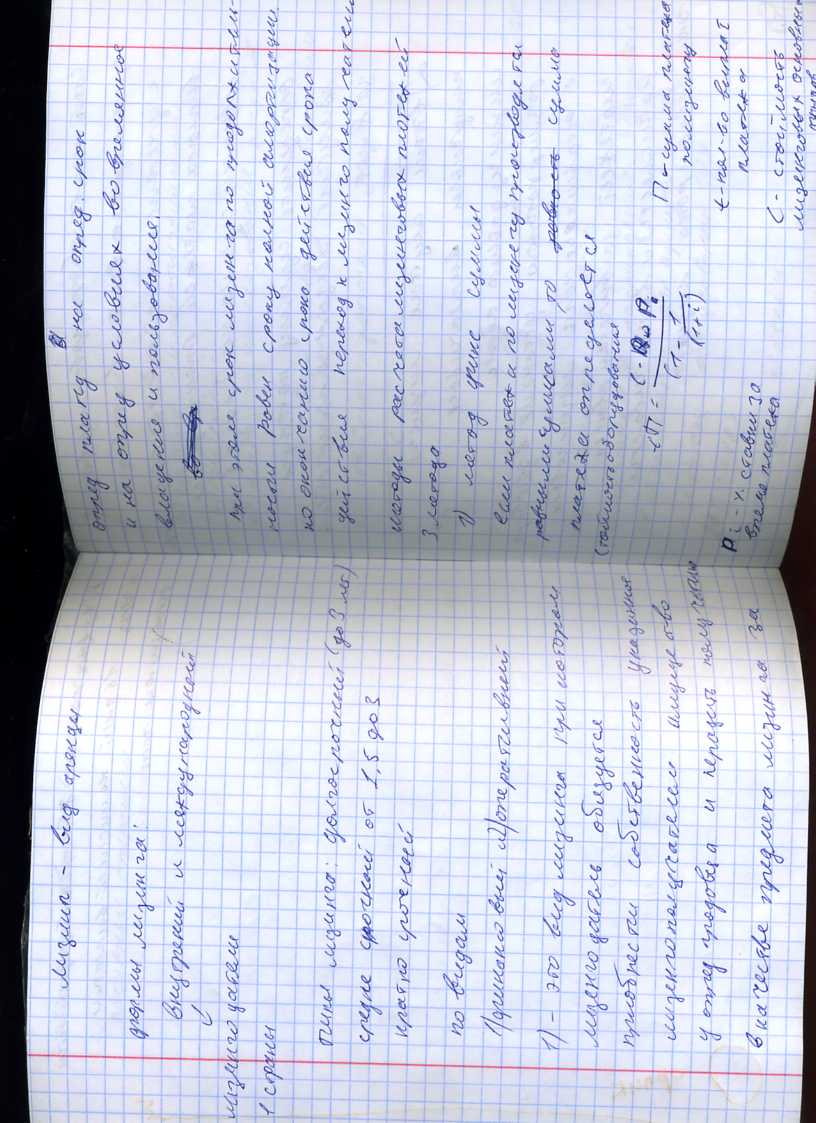 Лизинг - вид аренды
формы лизинга:
внутрений и международный
лизингодатели
1 страны
типы лизинга: долгосрочный (до 3 лет)
средне срочный от 1,5 до 3
кратко срочный
по видам
1) финансовый 2) оперативный
1) - это вид лизинга при котором
лизингодатель обязуется
приобрести собственность указанное
лизингополучателем имущество
у опред продовца и передать
в качестве предмета лизинга за
опред плату на опред. срок
и на опред условиях во временное
владение и пользования.
при этом срок лизинга по продолжитель-
ности равен сроку полной амортизации
по окончанию срока действия срока
действия переход к лизинго получателю
методы расчета лизинговых платежей
3 метода
1) метод суммы
если платежи по лизингу производятся
равными то сумма
платежа определяется
стоимость оборудования
П =
(1 - 1
(1+i)
П - сумма платежа
по лизингу
t - кол-во выплат
платежа
С - стоимость
лизинговых основных
фондов
i - % ставки за
время платежа